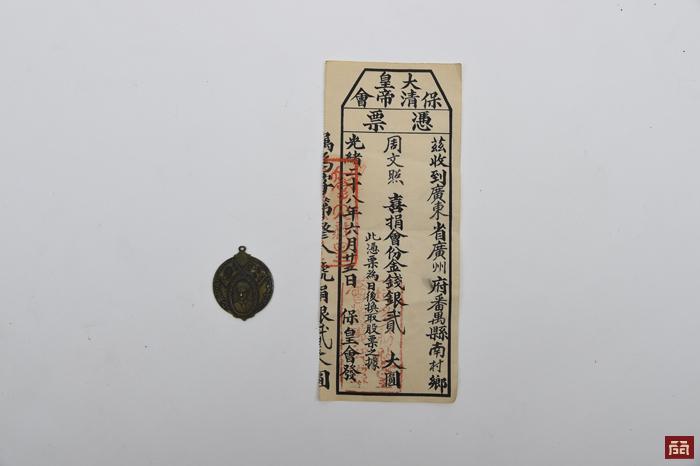 保大清皇帝會
憑票
茲收到廣東省廣州府番禺縣南村鄉
周文照 喜捐會份金錢銀貳大圓
此憑票為日後換取股票之據
光緒二十八年六月廿五日 保皇會發
號捐銀貳大圓